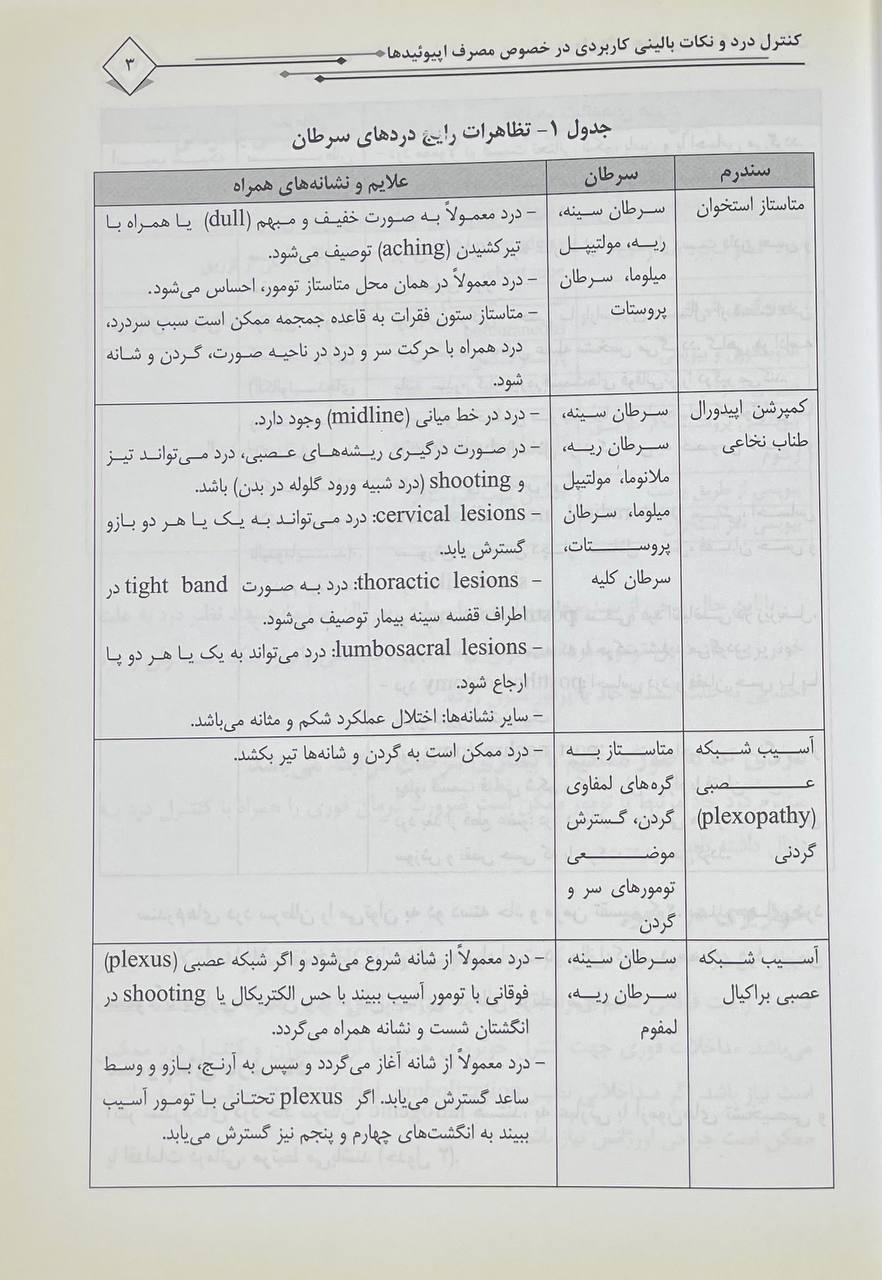 کنترل درد و نکات بالینی کاربردی در خصوص مصرف اپیوئیدها
۳
جدول ۱- تظاهرات رایج دردهای سرطان
سندرم
سرطان
علایم و نشانه‌های همراه
متاستاز استخوان
سرطان سینه،
ریه، مولتیپل
میلوما، سرطان
پروستات
- درد معمولاً به صورت خفیف و مبهم (dull) یا همراه با
تیر کشیدن (aching) توصیف می‌شود.
- درد معمولاً در همان محل متاستاز تومور، احساس می‌شود.
- متاستاز ستون فقرات به قاعده جمجمه ممکن است سبب سردرد،
درد همراه با حرکت سر و درد در ناحیه صورت، گردن و شانه
شود.
کمپرشن اپیدورال
طناب نخاعی
سرطان سینه،
سرطان ریه،
ملانوما، مولتیپل
میلوما، سرطان
پروستات،
سرطان کلیه
- درد در خط میانی (midline) وجود دارد.
- در صورت درگیری ریشه‌های عصبی، درد می‌تواند تیز
و shooting (درد شبیه ورود گلوله در بدن) باشد.
- cervical lesions: درد می‌تواند به یک یا هر دو بازو
گسترش یابد.
- thoractic lesions: درد به صورت tight band در
اطراف قفسه سینه بیمار توصیف می‌شود.
- lumbosacral lesions: درد می‌تواند به یک یا هر دو پا
ارجاع شود.
- سایر نشانه‌ها: اختلال عملکرد شکم و مثانه می‌باشد.
آسیب شبکه
عصبی
(plexopathy)
گردنی
متاستاز به
گره‌های لمفاوی
گردن، گسترش
موضعی
تومورهای سر و
گردن
- درد ممکن است به گردن و شانه‌ها تیر بکشد.
آسیب شبکه
عصبی براکیال
سرطان سینه،
سرطان ریه،
لمفوم
- درد معمولاً از شانه شروع می‌شود و اگر شبکه عصبی (plexus)
فوقانی با تومور آسیب ببیند با حس الکتریکال یا shooting در
انگشتان شست و نشانه همراه می‌گردد.
- درد معمولاً از شانه آغاز می‌گردد و سپس به آرنج، بازو و وسط
ساعد گسترش می‌یابد. اگر plexus تحتانی با تومور آسیب
ببیند به انگشت‌های چهارم و پنجم نیز گسترش می‌یابد.